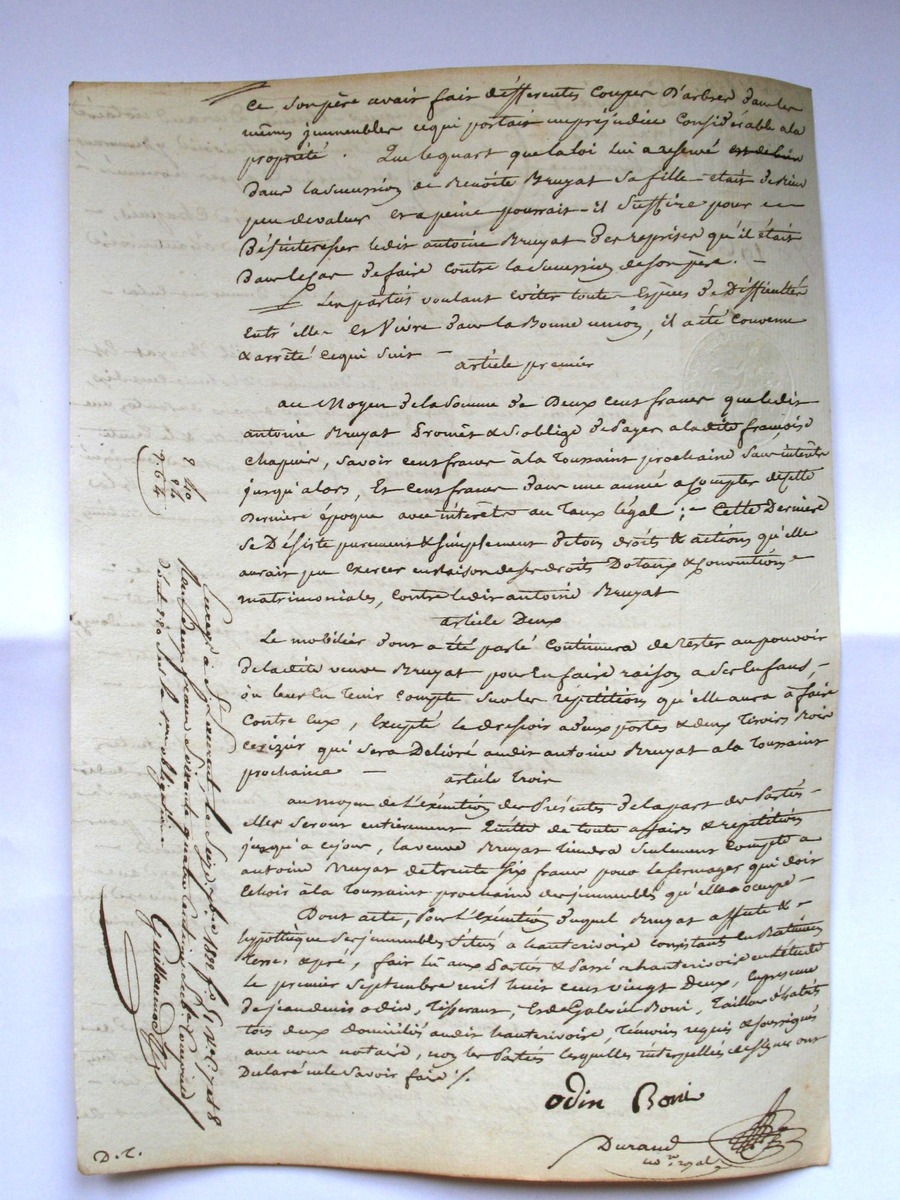 Ce Son père avait fait différentes Coupes D'arbres dans les
mêmes jmmeubles cequi portait un préjudice Considérable a la
propriété. Que le quart que la loi lui a reservé
Dans la Succession de Benoite Bruyat Sa fille était de bien
peu de valeur et a peine pourrait-il Suffire pour
Désintéresser ledit antoine Bruyat Des reprises qu'il était
Dans le Cas de faire Contre la Succession de Son père. -
Les parties voulant Eviter toutes Espèces de Difficultés
Entr'elles Et Vivre dans la Bonne union, il a été Convenu
& arrêté Cequi Suit -
article premier
au Moyen de la Somme de Deux Cent francs que ledit
antoine Bruyat Promet & S'oblige de Payer a ladite françoise
Chapuis, Savoir Cent francs à la Toussaint prochaine Sans intérêts
jusqu'alors, Et Cent francs dans une année a Compter de cette
Dernière époque avec intérêts au Taux légal; Cette Dernière
Se Désiste purement & Simplement de tous droits & actions qu'elle
aurait pu Exercer en Raison de Ses droits Dotaux & Conventions
matrimoniales, Contre ledit antoine Bruyat
article Deux
Le mobilier dont a été parlé Continuera de Rester au pouvoir
de ladite veuve Bruyat pour En faire raison a Ses Enfans,
ou leur En tenir Compte Sur les répétitions qu'elle aura à faire
Contre Eux, Excepté le dressoir a deux portes & deux Tiroirs Bois
Cerizier qui Sera Délivré audit antoine Bruyat a la Toussaint
prochaine -
article Trois
au moyen de L'exécution des Présentes de la part des Parties
elles Seront entièrement Quittes de toutes affaires & répétitions
jusqu'a ce jour, la veuve Bruyat tiendra Seulement Compte a
antoine Bruyat de trente Six francs pour le fermage qui doit
Echoir à la Toussaint prochaine des jmmeubles qu'elle occupe -
Dont acte, Pour L'Exécution Duquel Bruyat affecte &
hypothèque Ses jmmeubles Situés a hauterivoire Consistant En Batimens
Terres & pré, fait lu aux Parties & Passé a hauterivoire en l'étude
le premier Septembre mil huit Cent vingt Deux, En présence
de jean denis odin, Tisserant, Et de Gabriel Boni, Tailleur d'habits
tous deux domiciliés audit hauterivoire, témoins requis & Soussignés
avec nous notaire, non les Parties lesquelles interpellées de Signer ont
Déclaré ne le Savoir faire ./.
odin Boni
Durand
no.re royal
D. T.
2 40
24
2.64
1822 f.o
Reçu Deux francs Soixante quatre Centimes
dont 220 Sur les obligations
Guillaumot